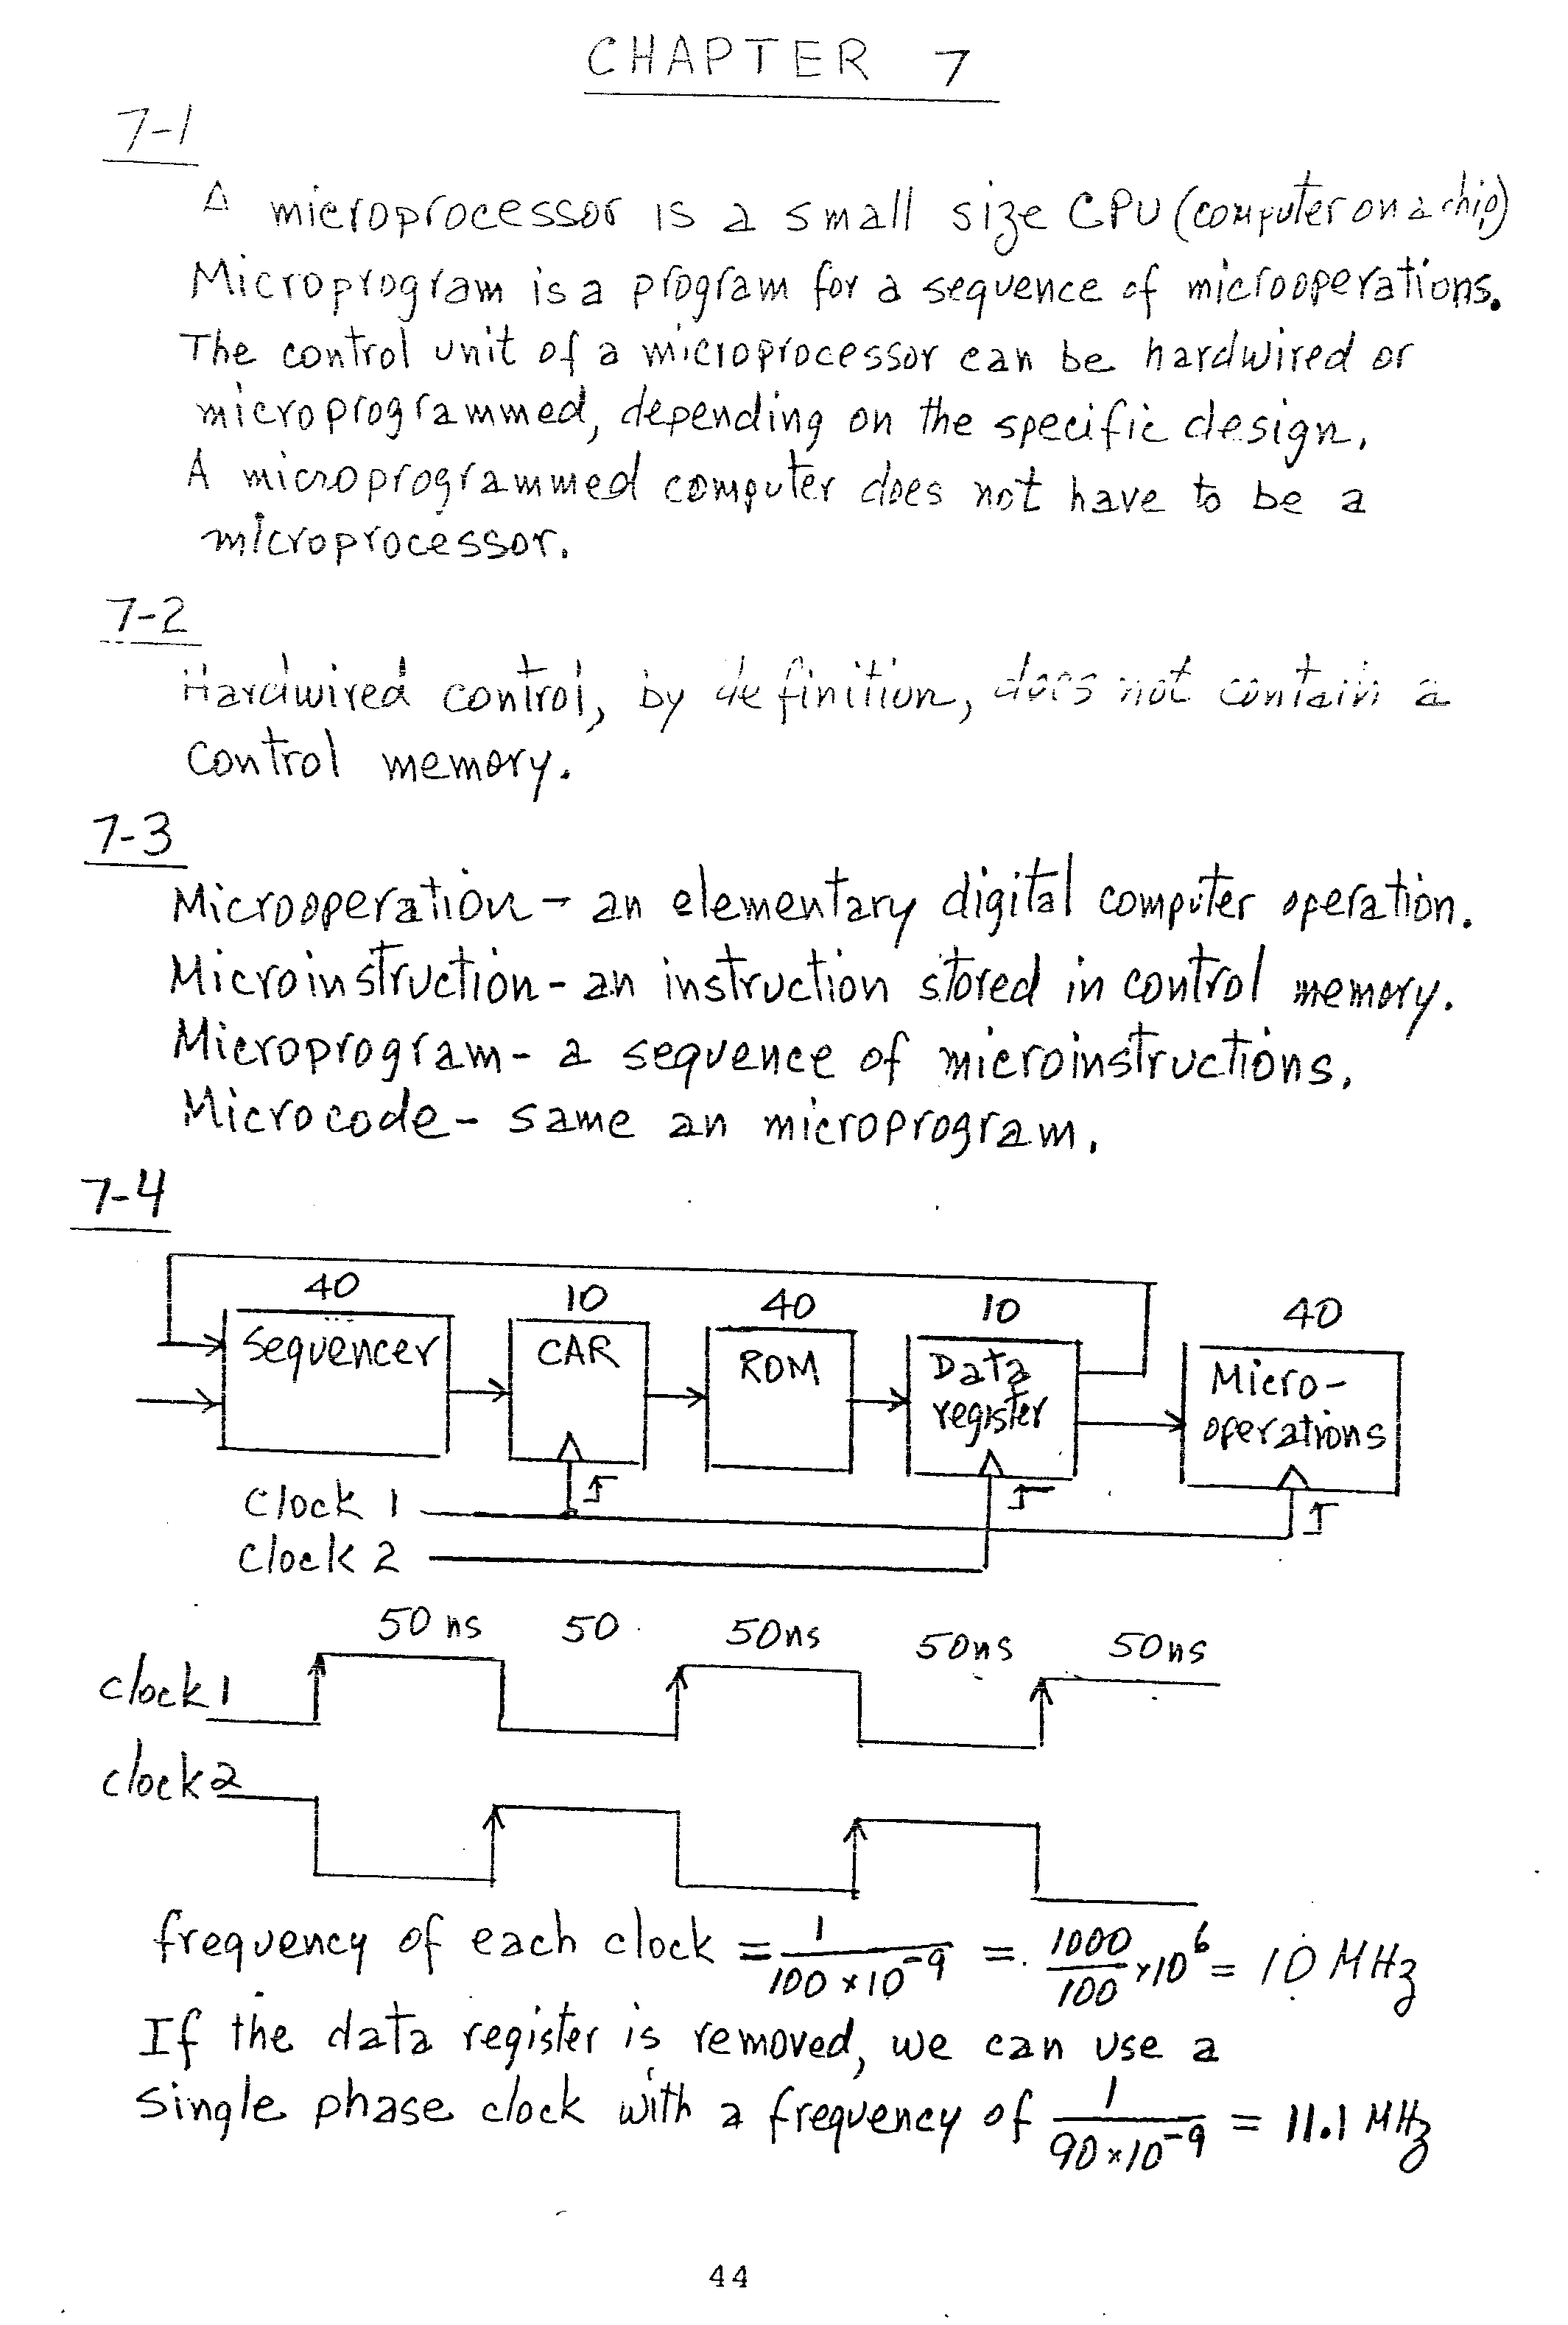 CHAPTER 7
7-1
A microprocessor is a small size CPU (computer on a chip)
Microprogram is a program for a sequence of microoperations.
The control unit of a microprocessor can be hardwired or
microprogrammed, depending on the specific design.
A microprogrammed computer does not have to be a
microprocessor.
7-2
Hardwired control, by definition, does not contain a
control memory.
7-3
Microoperation - an elementary digital computer operation.
Microinstruction - an instruction stored in control memory.
Microprogram - a sequence of microinstructions.
Microcode - same an microprogram.
7-4
40 10 40 10 40
Sequencer CAR ROM Data register Micro-operations
Clock 1
Clock 2
50 ns 50 50ns 50ns 50ns
clock 1
clock 2
frequency of each clock = 1/(100 × 10^-9) = 1000/100 × 10^6 = 10 MHz
If the data register is removed, we can use a
single phase clock with a frequency of 1/(90 × 10^-9) = 11.1 MHz
44